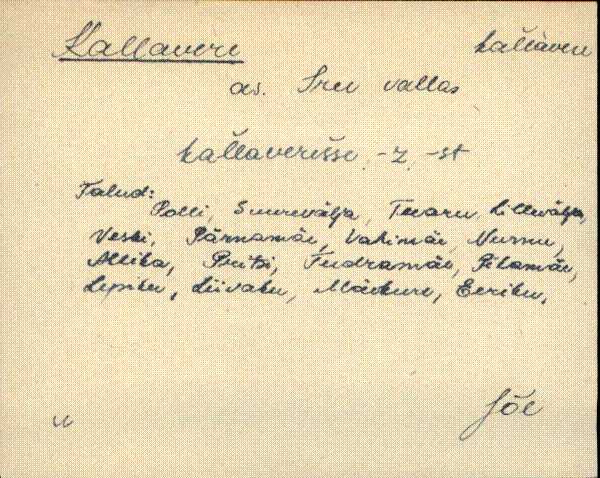 Kallavere kallàvere
as. Iru vallas
kallaverisse -z -st
Talud:
Polli, Suurevälja, Tuaru, Lillevälja,
Veski, Pärnamäe, Vahimäe, Nurmu,
Allika, Pritsi, Tudramäe, Pihamäe,
Lepiku, Liivaku, Mäekure, Eeriku,
Jõe